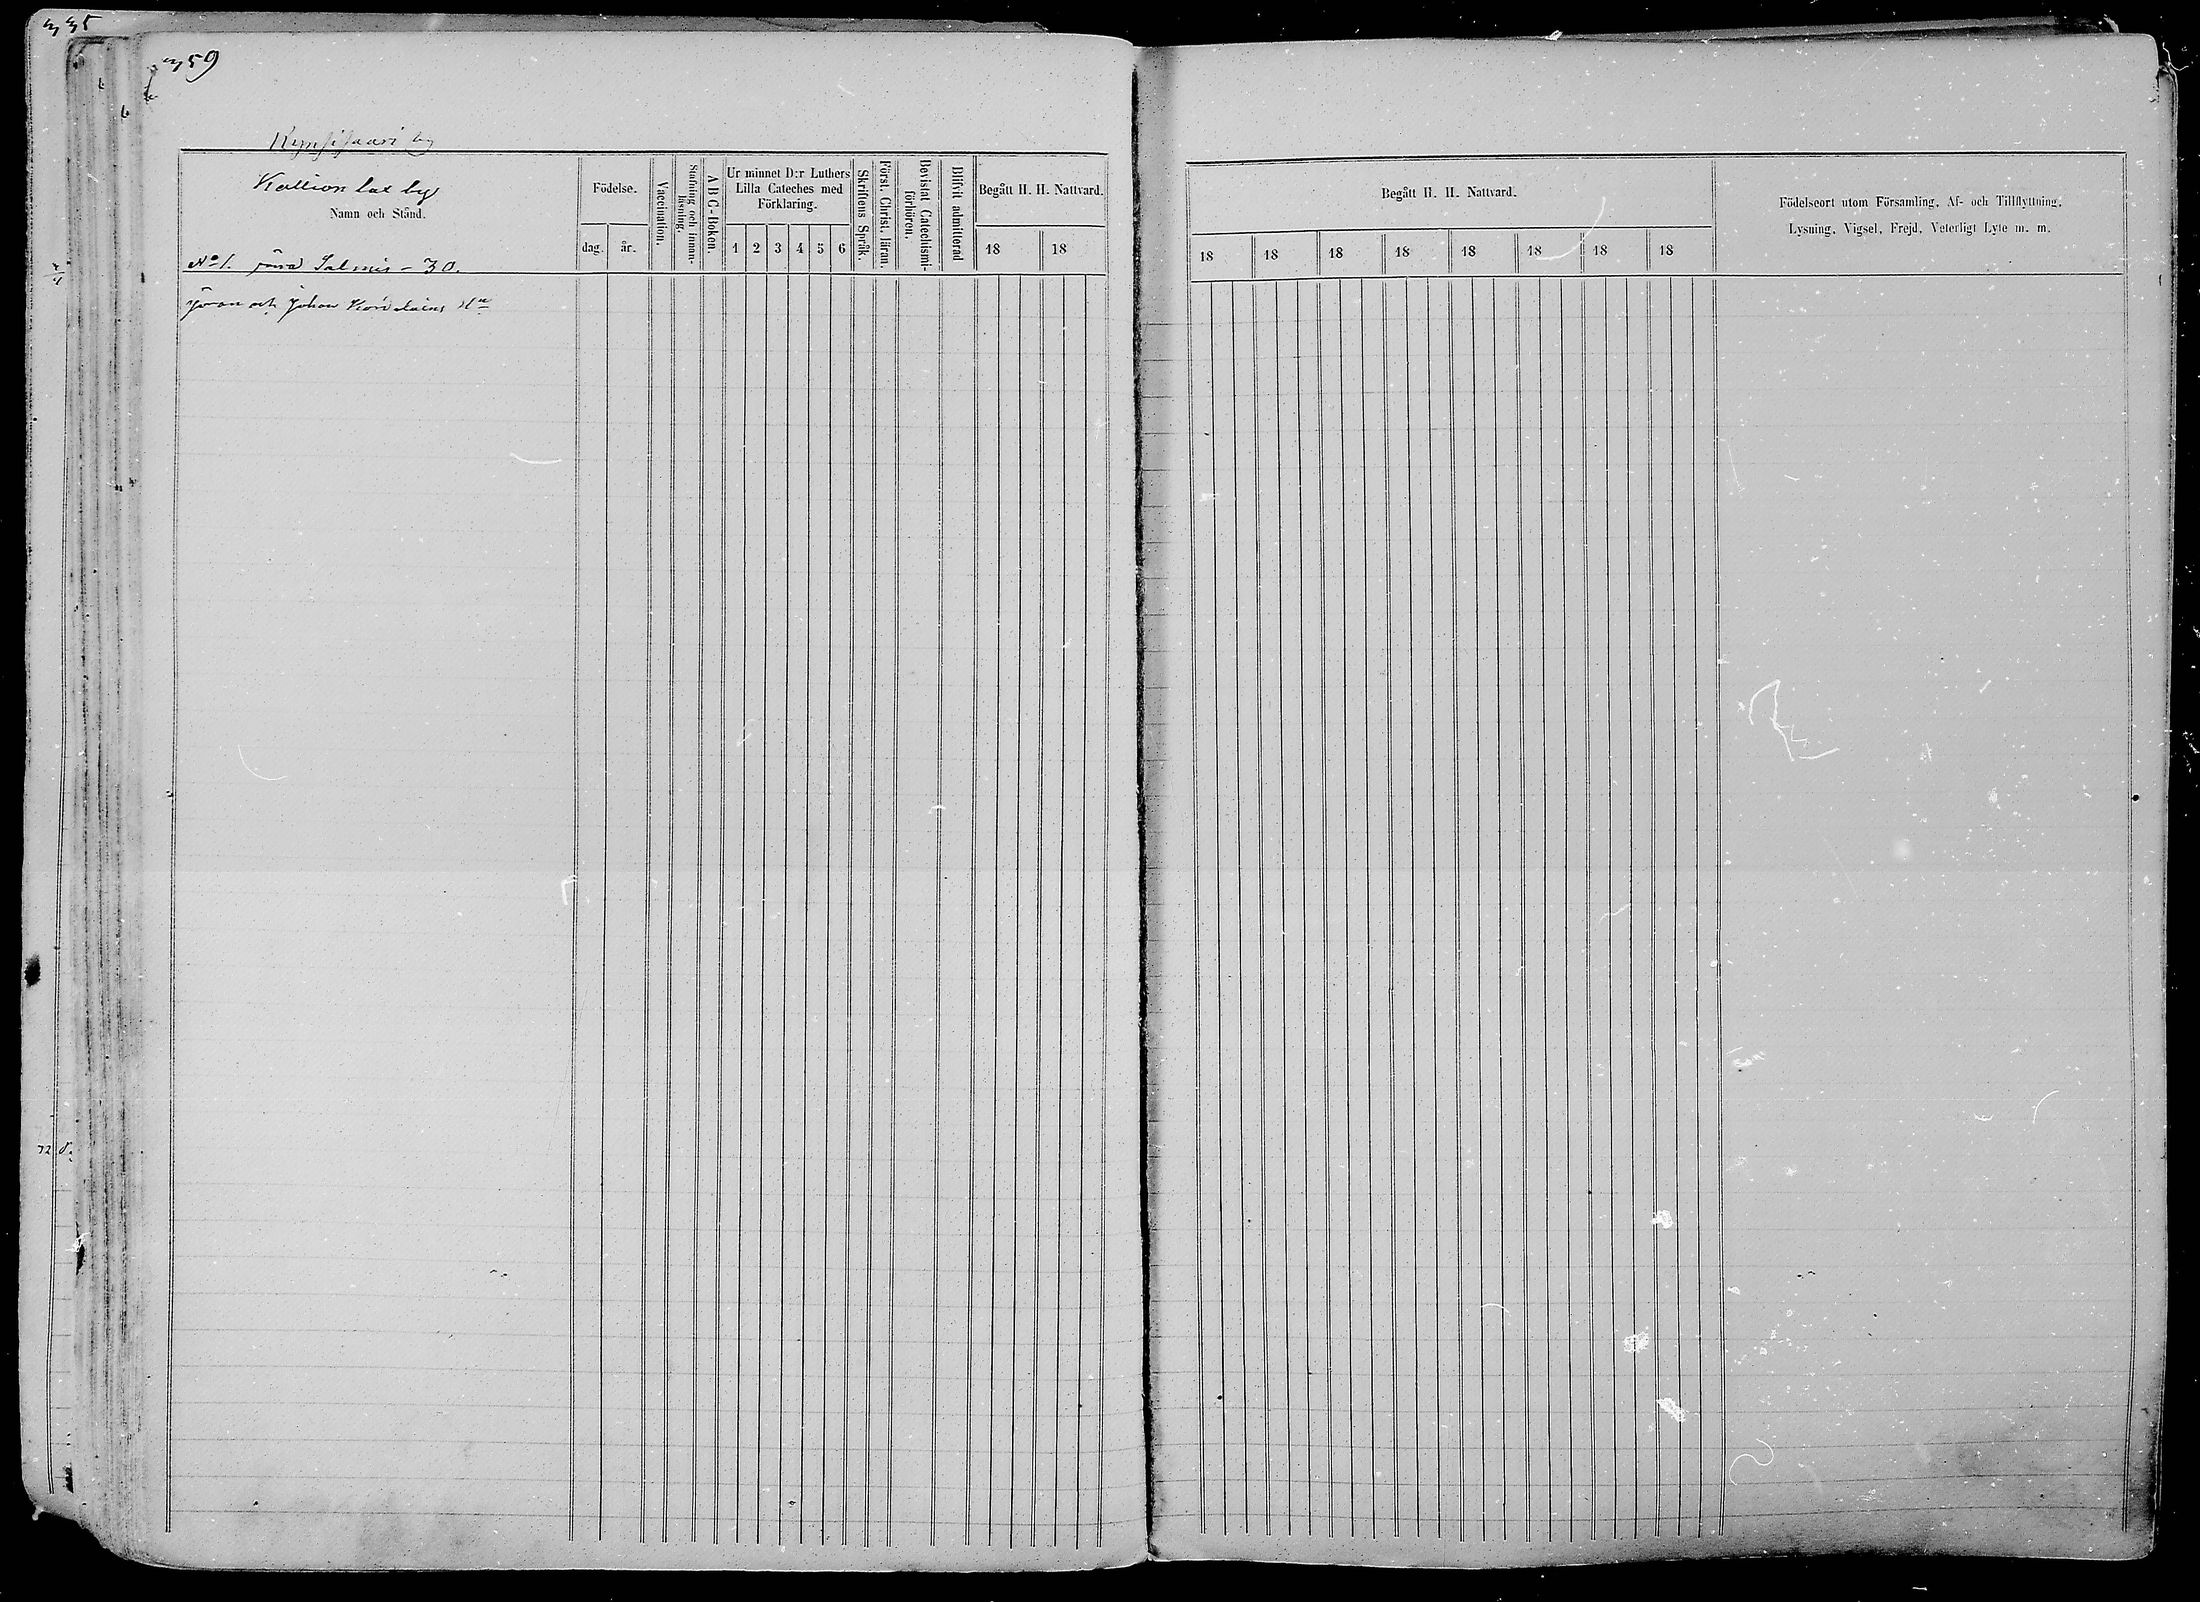 335
359
Kynsisaari by
Kallion lax by
Namn och Stånd.
No 1. Salmis - 30.
Jöran och Johan
Födelse.
dag. år.
Vaccination.
Stafning och innan-
läsning.
A B C-Boken.
Ur minnet D:r Luthers
Lilla Cateches med
Förklaring.
1 2 3 4 5 6
Skriftens Språk.
Först. Christ. läran.
Bevistat Catechismi-
förhören.
Blifvit admitterad
Begått H. H. Nattvard.
18 18
Begått H. H. Nattvard.
18 18 18 18 18 18 18 18
Födelseort utom Församling, Af- och Tillflyttning,
Lysning, Vigsel, Frejd, Veterligt Lyte m. m.
72